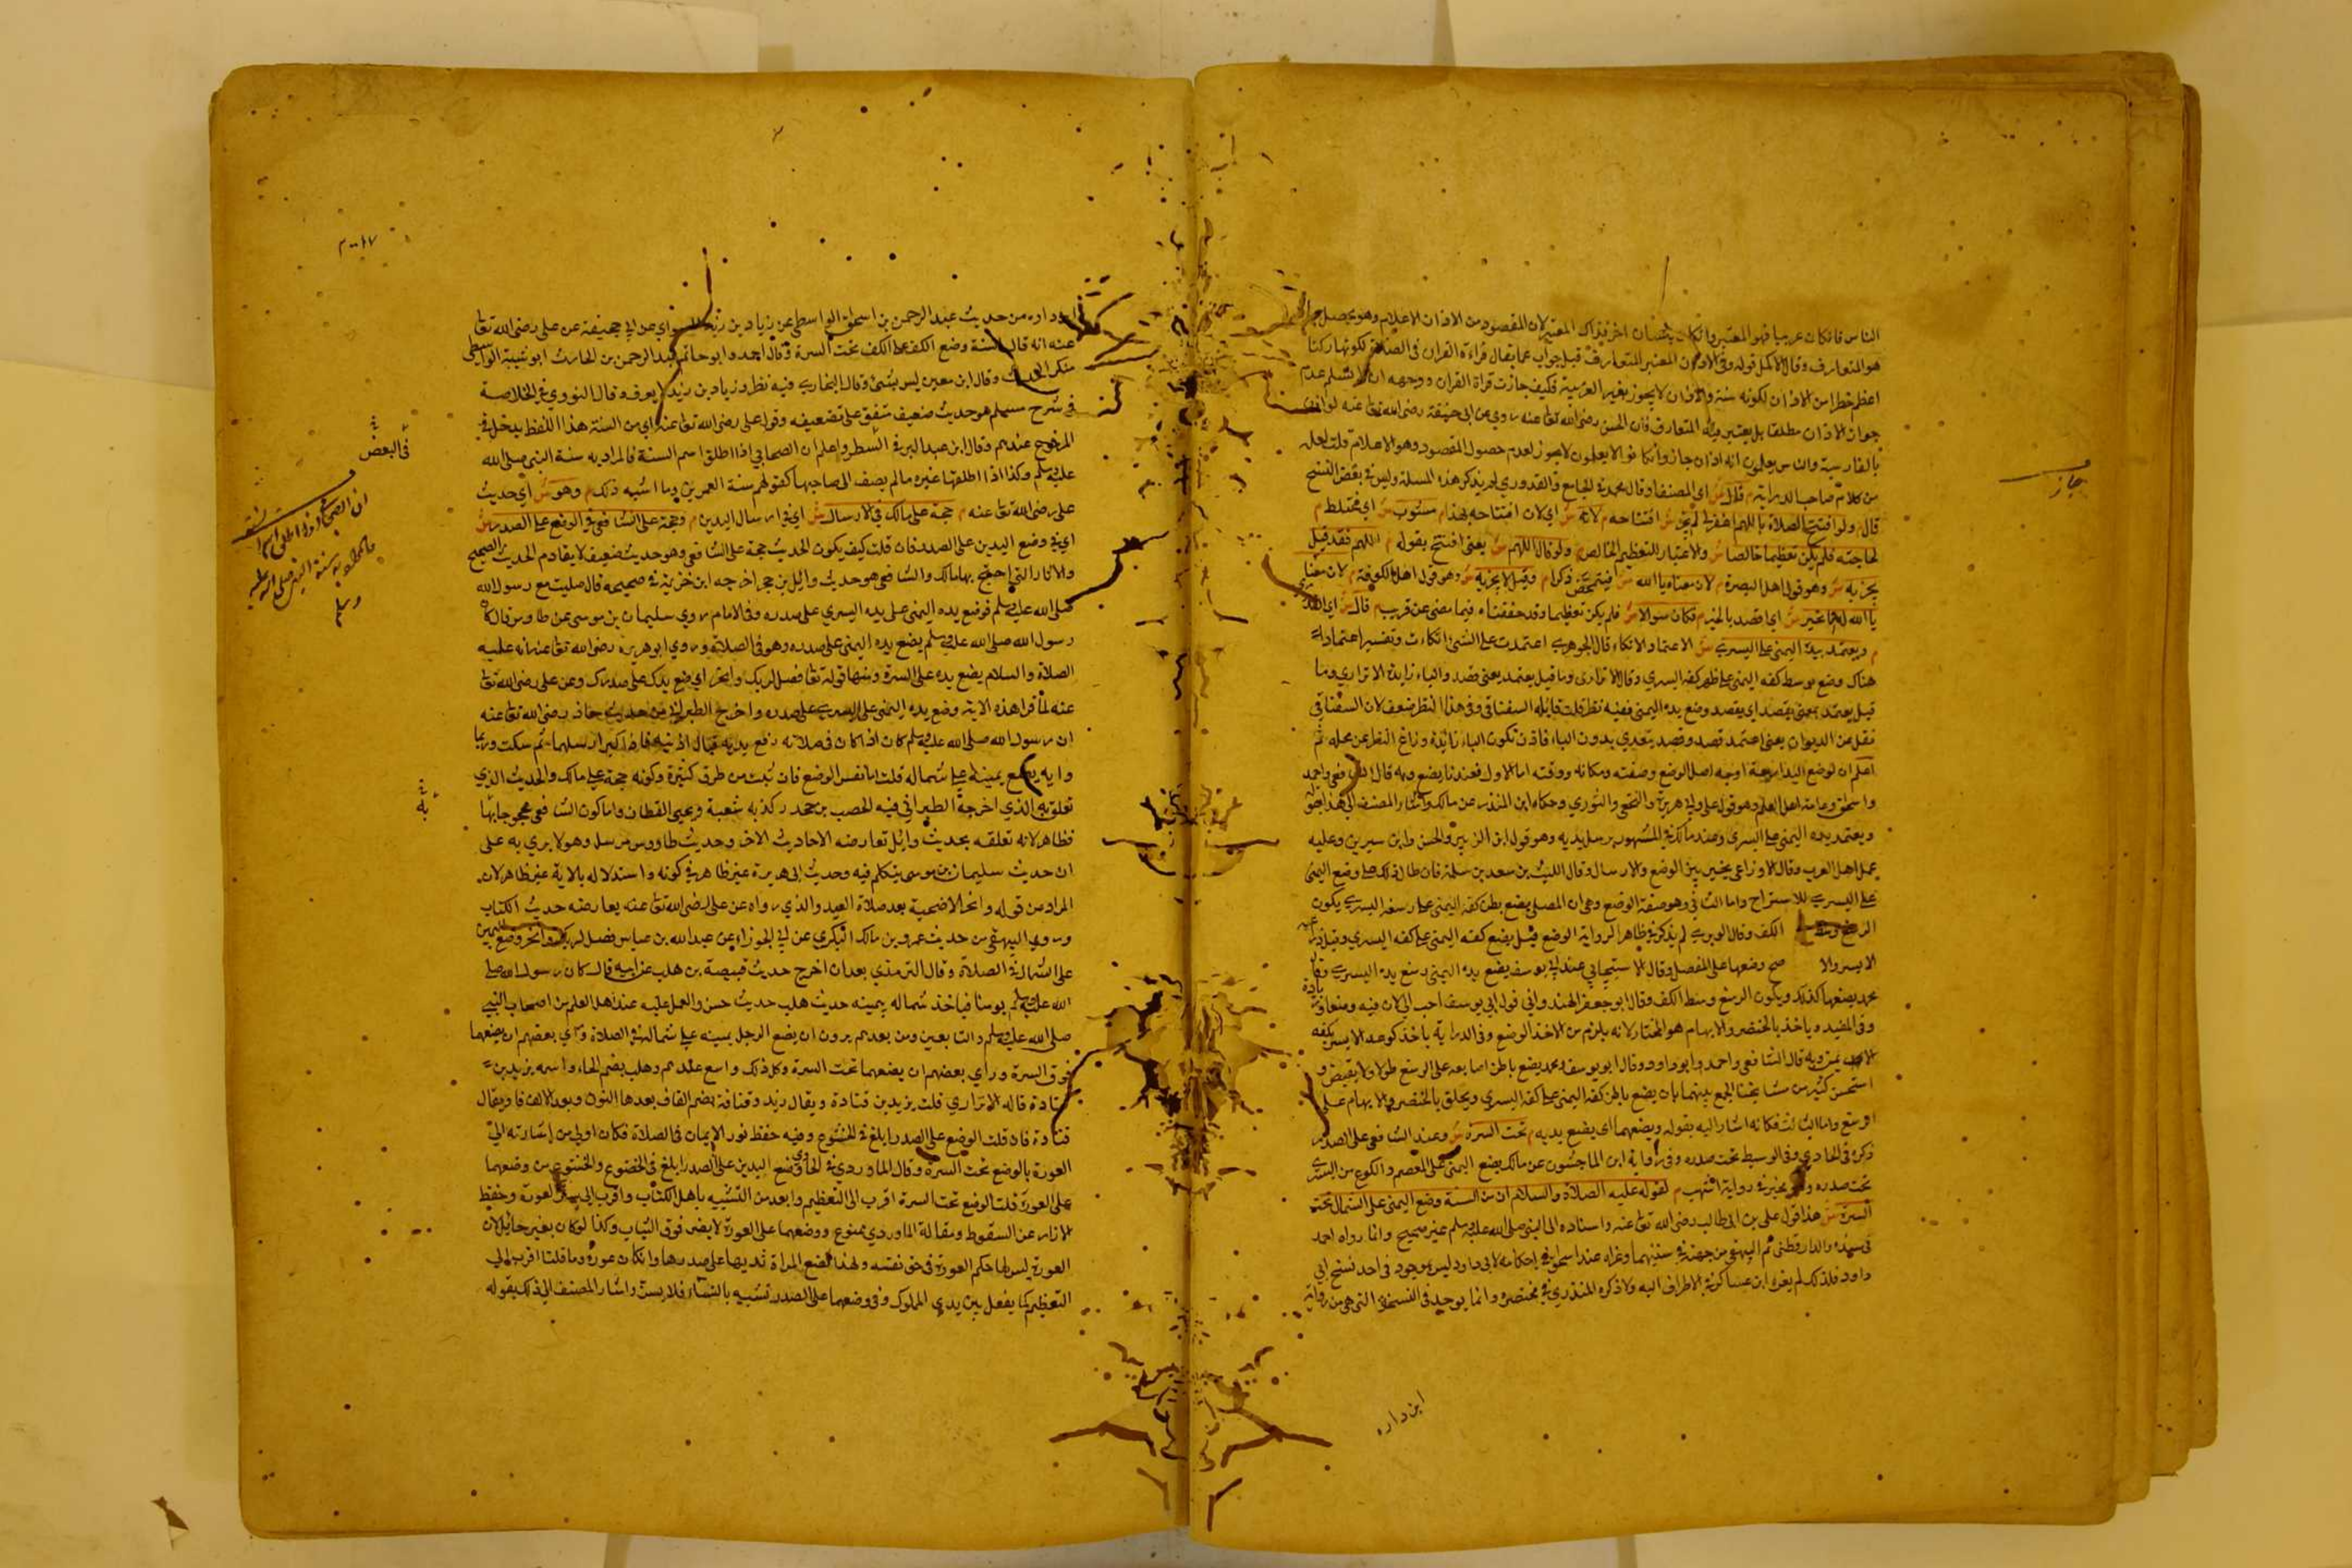 الناس فان كان عربيا فهو المعتبر وان كان بلسان اخر فذاك المعتبر لان المقصود من الاذان الاعلام وهو يحصل
هو المتعارف وقال الاكمل قوله وفي الاذان المعتبر المتعارف قيل جواب عما يقال قراءة القران في الصلاة لكونها ركنا
اعظم خطرا من الاذان لكونه سنة والاذان لا يجوز بغير العربية فكيف جازت قراة القران ووجهه ان لا نسلم عدم
جواز الاذان مطلقا بل يعتبر فيه المتعارف فان الحسن رضي الله تعا عنه روي عن ابي حنيفة رضي الله تعا عنه لو اذن
بالفارسية والناس يعلمون انه اذان جاز وان كانوا لا يعلمون لا يجوز لعدم حصول المقصود وهو الاعلام قلت لعله
من كلام صاحب الدراية م قال ش اي المصنف وقال محمد في الجامع والقدوري لم يذكر هذه المسئلة وليس في بعض النسخ
قال م ولو افتتح الصلاة باللهم اغفر لي لم يجز ش افتتاحه م لانه ش اي لان افتتاحه بهذا م مشوب ش اي مختلط م
لحاجته فلم يكن تعظيما خالصا ش والاعتبار للتعظيم الخالص م ولو قال اللهم ش يعني افتتح بقوله م اللهم فقد قيل
يجزيه ش وهو قول اهل البصرة م لان معناه يا الله ش فيتمحض ذكرا م وقيل لا يجزيه ش وهو قول اهل الكوفة م لان معناه
يا الله امنا بخير ش اي اقصد بالخير م فكان سوالا ش فلم يكن تعظيما وقد حققناه فيما مضى عن قريب م قال ش اي
م ويعتمد بيده اليمنى على اليسرى ش الاعتماد الاتكاء قال الجوهري اعتمدت على الشئ اتكات وتفسير اعتماد
هناك وضع بوسط كفه اليمنى على ظهر كفه اليسري وقال الاترازي وما قيل يعتمد يعني قصد والباء زايدة الاترازي وما
قيل يعتمد بمعنى يقصد اي يقصد وضع يده اليمنى ففيه نظر قلت قايله السغناقي وفي هذا النظر ضعف لان السغناقي
نقل عن الديوان يعني اعتمد قصد وقصد يتعدي بدون الباء فاذن تكون الباء زائدة وزاغ النقل عن محله ثم
اعلم ان لوضع اليد اربعة اوجه اصل الوضع وصفته ومكانه ووقته اما الاول فعندنا يضع وبه قال الشافعي واحمد
واسحق وعامة اهل العلم وهو قول علي وابي هريرة والنخعي والثوري وحكاه ابن المنذر عن مالك واشار المصنف الى هذا بقوله
ويعتمد بيده اليمنى على اليسرى وعند مالك في المشهور يرسل يديه وهو قول ابن الزبير والحسن وابن سيرين وعليه
عمل اهل الغرب وقال الاوزاعي يخير بين الوضع والارسال وقال الليث بن سعد يرسله فان طال ذلك عليه وضع اليمنى
على اليسري للاستراح واما الثاني وهو صفة الوضع وهي ان المصلي يضع بطن كفه اليمنى على رسغه اليسري يكون
الرسغ وسط الكف وقال الوبري لم يذكر في ظاهر الرواية الوضع قيل يضع كفه اليمنى على كفه اليسري وقيل ذراعه
الايسر والاصح وضعها على المفصل وقال الاسبيجابي عند ابي يوسف يضع يده اليمنى رسغ يده اليسري وقال
محمد يضعها كذلك ويكون الرسغ وسط الكف وقال ابو جعفر الهندواني قول ابي يوسف احب الي لان فيه وضعا وزيادة
وفي المفيد وياخذ بالخنصر والابهام هو المختار لانه يلزم من الاخذ الوضع وفي الدراية ياخذ كوعه الايسر بكفه
الايمن وبه قال الشافعي واحمد وابو داود وقال ابو يوسف ومحمد يضع باطن اصابعه على الرسغ طولا ولا يقبض و
استحسن كثير من مشايخنا الجمع بينهما بان يضع باطن كفه اليمنى على كفه اليسري ويحلق بالخنصر والابهام على
الرسغ واما الثالث فكانه اشار اليه بقوله ويضعهما اي يضع يديه م تحت السرة ش وعند الشافعي على الصدر
ذكره في الحاوي وفي الوسيط تحت صدره وفي رواية ابن الماجشون عن مالك يضع اليمنى على المعصم والكوع من اليسري
تحت صدره وهو يخير في رواية اشهب م لقوله عليه الصلاة والسلام ان من السنة وضع اليمنى على الشمال تحت
السرة ش هذا قول علي بن ابي طالب رضي الله تعا عنه واسناده الى النبي صلى الله عليه وسلم غير صحيح وانما رواه احمد
في مسنده والدارقطني ثم البيهقي من جهته في سننيهما وعزاه عبد الحق في احكامه لابي داود ليس بموجود في احد نسخ ابي
داود فلذلك لم يعزه ابن عساكر في الاطراف اليه ولا ذكره المنذري في مختصره وانما يوجد في النسخة التي هي من رواية
جاز
ابن داره
ابن داره من حديث عبد الرحمن بن اسحاق الواسطي عن زياد بن زيد السواي عن ابي جحيفة عن علي رضي الله تعا
عنه انه قال السنة وضع الكف على الكف تحت السرة وقال احمد وابو حاتم عبد الرحمن بن الحارث ابو شيبة الواسطي
منكر الحديث وقال ابن معين ليس بشئ وقال البخاري فيه نظر وزياد بن زيد لا يعرف وقال النووي في الخلاصة
في شرح مسلم هو حديث ضعيف متفق على تضعيفه وقول علي رضي الله تعا عنه اي من السنة هذا اللفظ يدخل في
المرفوع عندهم وقال ابن عبد البر في السطر واعلم ان الصحابي اذا اطلق اسم السنة فالمراد به سنة النبي صلى الله
عليه وسلم وكذا اذا اطلقها غيره ما لم يضف الى صاحبها كقولهم سنة العمرين وما اشبه ذلك م وهو ش اي حديث
علي رضي الله تعا عنه م حجة على مالك في الارسال ش اي في ارسال اليدين م وحجة على الشافعي في الوضع على الصدر ش
اي في وضع اليدين على الصدر فان قلت كيف يكون الحديث حجة على الشافعي وهو حديث ضعيف لا يقادم الحديث الصحيح
والاثار التي احتج بها مالك والشافعي هو حديث وائل بن حجر اخرجه ابن خزيمة في صحيحه قال صليت مع رسول الله
صلى الله عليه وسلم فوضع يده اليمنى على يده اليسري على صدره وفي الامام روي سليمان بن موسى عن طاوس قال كان
رسول الله صلى الله عليه وسلم يضع يده اليمنى على صدره وهو في الصلاة وروي ابو هريرة رضي الله تعا عنه انه عليه
الصلاة والسلام يضع يده على السرة ومنها قوله تعا فصل لربك وانحر اي ضع يدك على صدرك وعن علي رضي الله تعا
عنه لما قرا هذه الاية وضع يده اليمنى على اليسري على صدره واخرج الطبراني من حديث معاذ رضي الله تعا عنه
ان رسول الله صلى الله عليه وسلم كان اذا كان في صلاته رفع يديه قبال اذنيه فاذا كبر ارسلهما ثم سكت وربما
رايه يضع يمينه على شماله قلت اما نفس الوضع فان ثبت من طرق كثيرة وكونه حجة على مالك والحديث الذي
تعلق به الذي اخرجه الطبراني فيه الخصيب بن جحدر كذبه شعبة ويحيى القطان واما كون الشافعي محجوجا بها
فظاهر لانه تعلقه بحديث وائل تعارضه الاحاديث الاخر وحديث طاووس مرسل وهو لا يري به على
ان حديث سليمان بن موسى يتكلم فيه وحديث ابي هريرة غير ظاهر في كونه واستدلاله بالاية غير ظاهر لان
المراد من قوله وانحر الاضحية بعد صلاة العيد والذي رواه عن علي رضي الله تعا عنه يعارضه حديث الكتاب
وروي البيهقي من حديث عمرو بن مالك البكري عن ابي الجوزاء عن عبد الله بن عباس فصل لربك وانحر وضع اليمين
على الشمال في الصلاة وقال الترمذي بعد ان اخرج حديث قبيصة بن هلب عن ابيه قال كان رسول الله صلى
الله عليه وسلم يومنا فياخذ شماله بيمينه حديث هلب حديث حسن والعمل عليه عند اهل العلم من اصحاب النبي
صلى الله عليه وسلم والتابعين ومن بعدهم يرون ان يضع الرجل يمينه على شماله في الصلاة وراي بعضهم ان يضعهما
فوق السرة وراي بعضهم ان يضعهما تحت السرة وكل ذلك واسع عندهم وهلب بضم الهاء واسمه يزيد بن
قتادة قاله الاترازي قلت يزيد بن قتادة ويقال زيد وقنافة بضم القاف بعدها النون وبعد الالف فا ويقال
قتادة فان قلت الوضع على الصدر ابلغ في الخشوع وفيه حفظ نور الايمان في الصلاة فكان اولى من اشارته الي
العورة بالوضع تحت السرة وقال الماوردي في الحاوي وضع اليدين على الصدر ابلغ في الخضوع والخشوع من وضعهما
على العورة قلت الوضع تحت السرة اقرب الى التعظيم وابعد من التشبيه باهل الكتاب واقرب الى ستر العورة وحفظ
الازار عن السقوط ومقالة الماوردي ممنوع ووضعهما على العورة لا يضر فوق الثياب وكذا لو كان بغير حائل لان
العورة ليس لها حكم العورة في حق نفسه ولهذا تضع المراة ثديها على صدرها وان كان عورة وما قلنا اقرب الي
التعظيم كما يفعل بين يدي الملوك وفي وضعهما على الصدر تشبيه بالنساء فلا يسن واشار المصنف الى ذلك بقوله
في البعض
ان الصحابي اذا اطلق اسم السنة
فالمراد به سنة النبي صلى الله عليه
وسلم
به